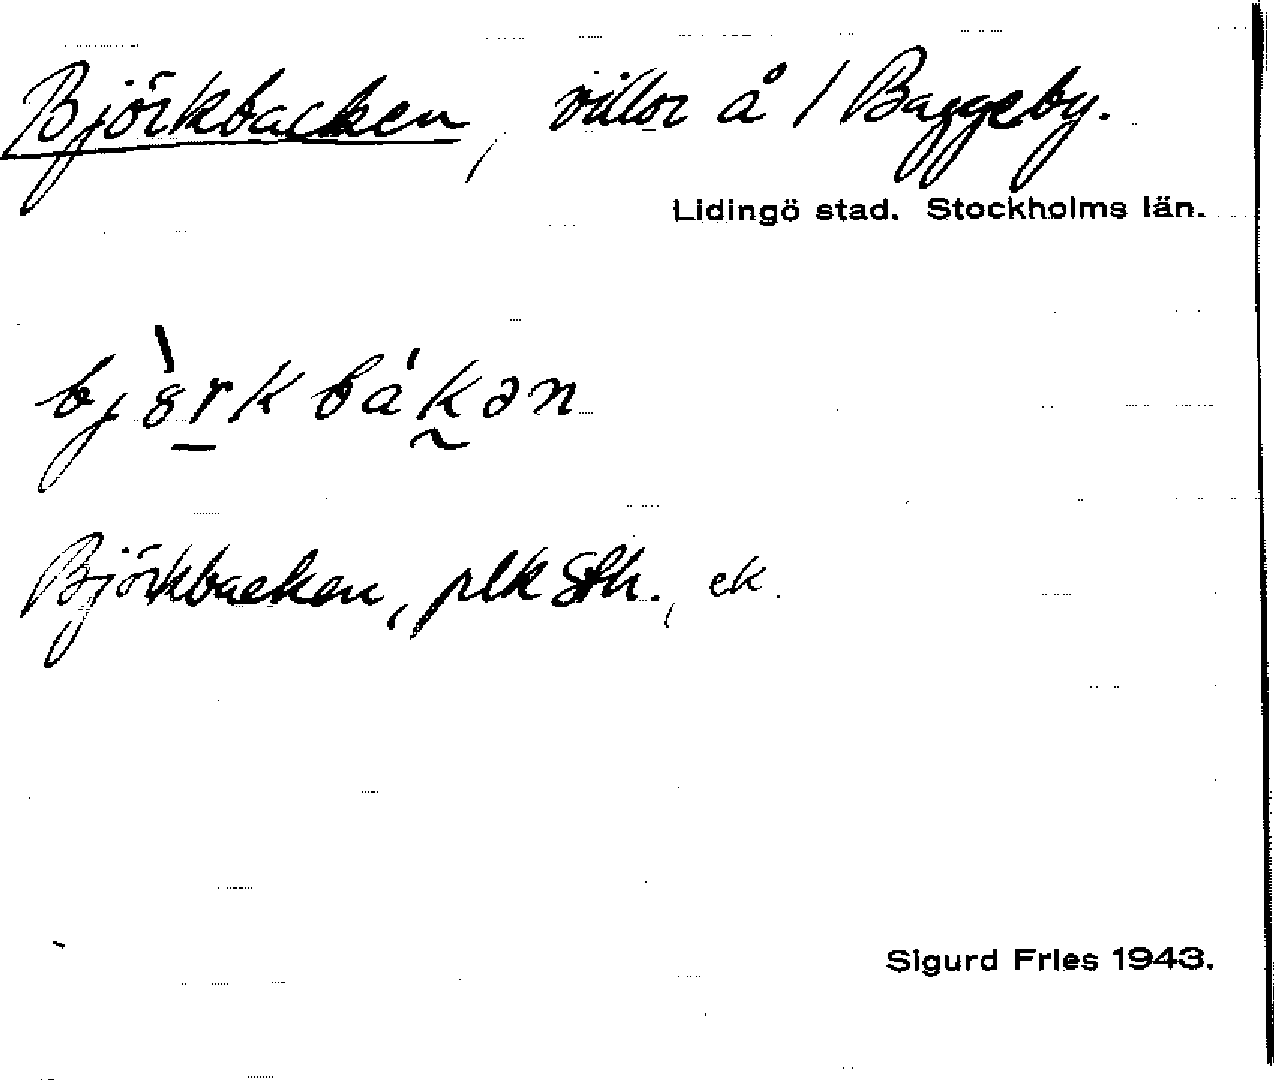 Björkbacken, villor å 1 Baggeby.
Lidingö stad. Stockholms län.
bjö̀rkbákən
Björkbacken, plk Sthl., ek.
Sigurd Fries 1943.